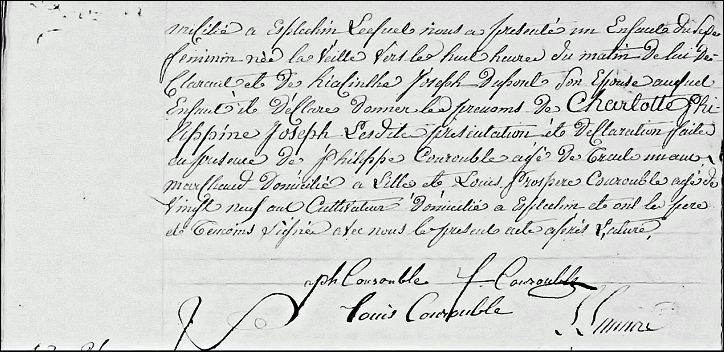 micilié à Esplechin Lequel nous a présenté un Enfant du Sexe
féminin née la Veille vers le huit heures du matin de lui dé-
Clarant et de hiacinthe Joseph Dupont son Epouse auquel
Enfant et Déclare donner les prenoms de Charlotte Phi
lippine Joseph Lesdite presentation et Declaration faite
en presence de Philippe Courouble agé de Trente neuf
marchand Domicilié a Lille et Louis Prospere Courouble agé de
Vingt neuf ans Cultivateur Domicilié a Esplechin et ont le pere
et Temoins signée avec nous le present acte après Lecture
ph Courouble f Courouble
Louis Courouble